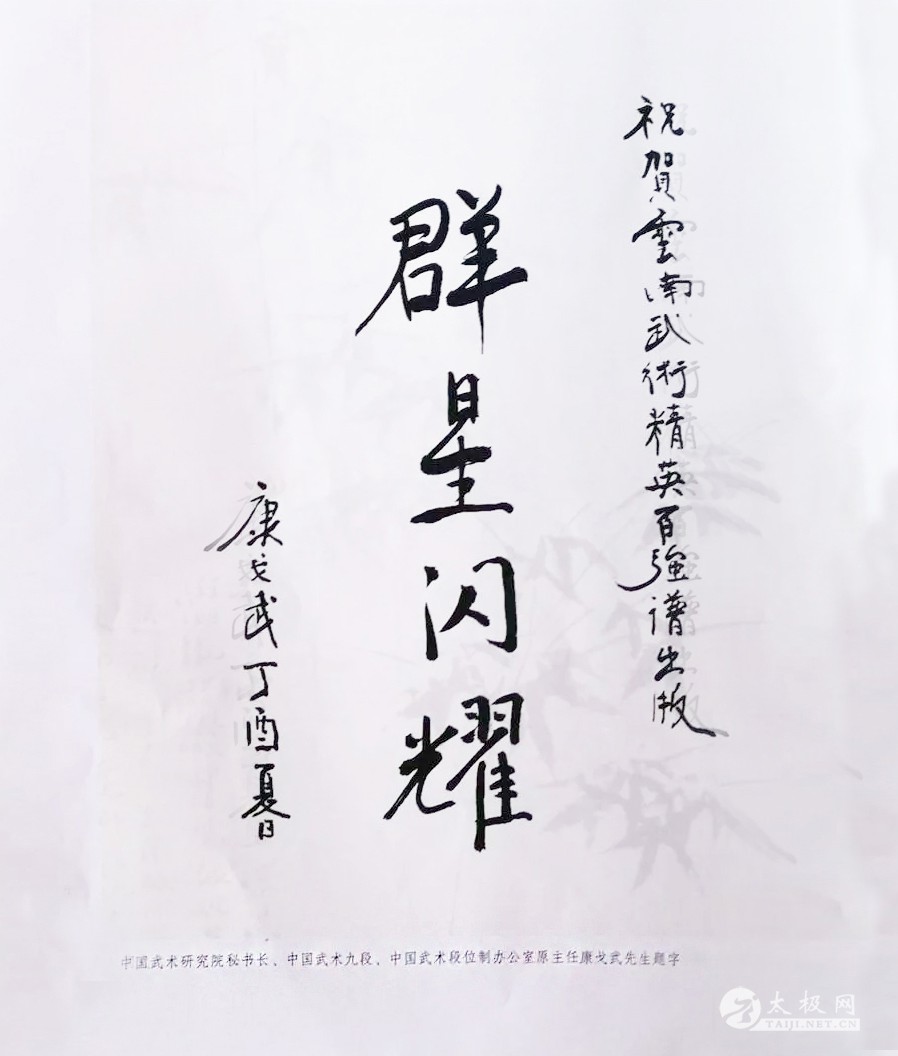 祝賀雲南武術精英百強譜出版
群星闪耀
康戈武丁酉夏日
中国武术研究院秘书长、中国武术九段、中国武术段位制办公室原主任康戈武先生题字
太极网
TAIJI.NET.CN